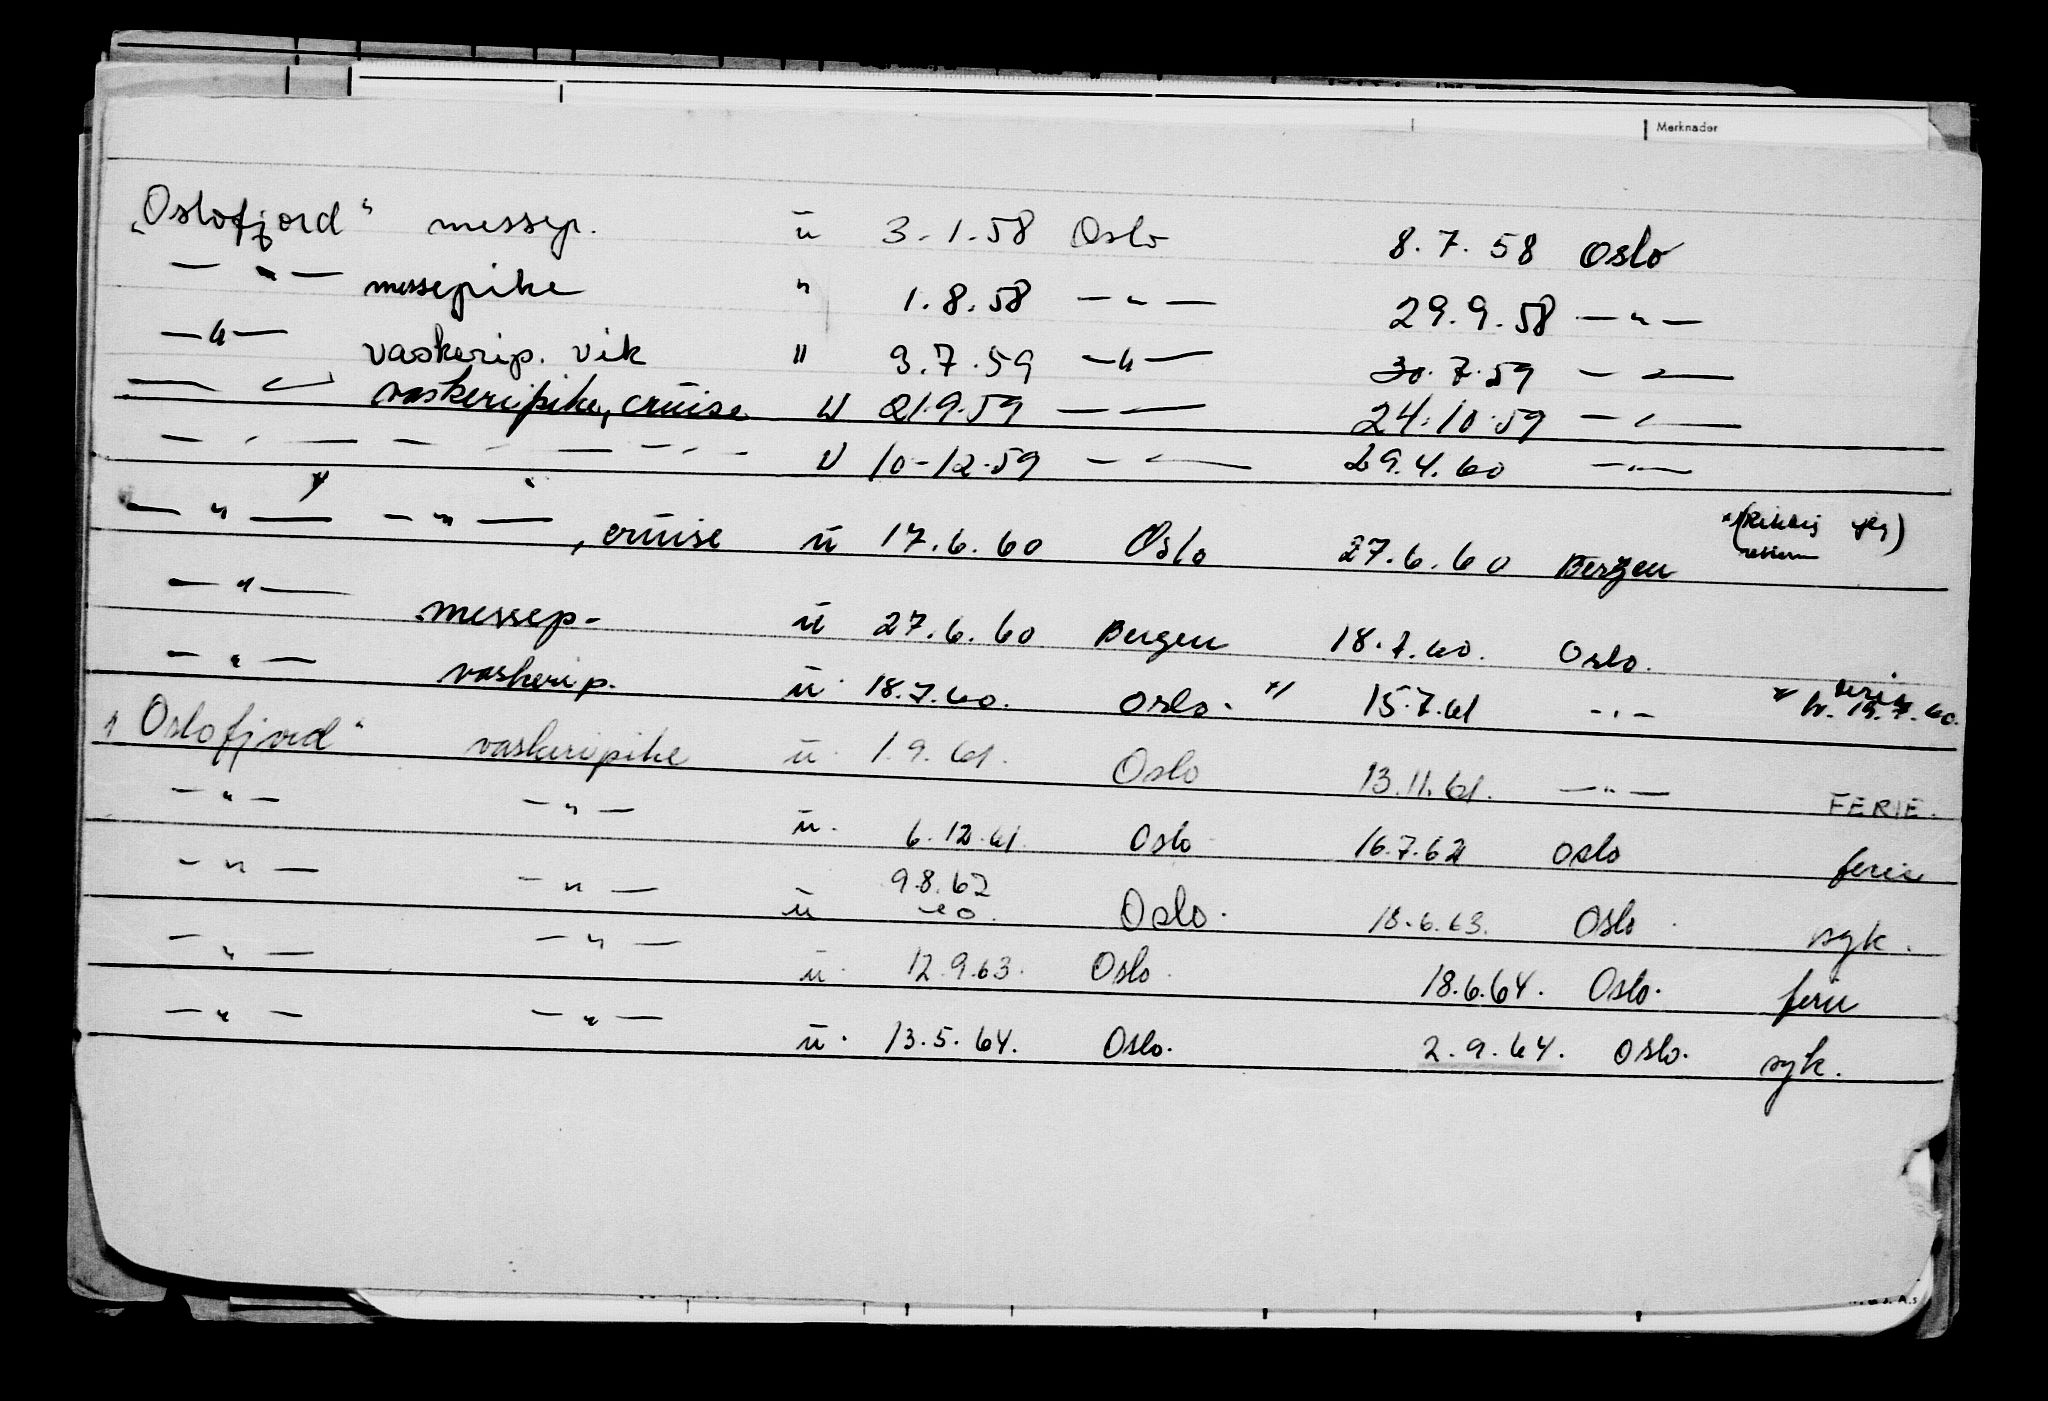 Merknader
„Oslofjord" messep. ū 3.1.58 Oslo 8.7.58 Oslo
— " — messepike " 1.8.58 — " — 29.9.58 — " —
— " — vaskerip. vik " 3.7.59 — " — 30.7.59 — " —
— " — vaskeripike, cruise U 21.9.59 — " — 24.10.59 — " —
— " — — " — — " — U 10-12.59 — " — 29.4.60 — " —
— " — — " —, cruise ū 17.6.60 Oslo 27.6.60 Bergen
— " — messep- ū 27.6.60 Bergen 18.7.60. Oslo.
— " — vaskerip. ū 18.7.60. Oslo. 15.7.61 — " —
"Oslofjord" vaskeripike ū. 1.9.61. Oslo 13.11.61. — " — FERIE.
— " — — " — ū. 6.12.61. Oslo 16.7.62 Oslo ferie
— " — — " — ū 9.8.62 Oslo. 18.6.63. Oslo syk.
— " — — " — ū. 12.9.63. Oslo. 18.6.64. Oslo. ferie
— " — — " — ū. 13.5.64. Oslo. 2.9.64. Oslo. syk.